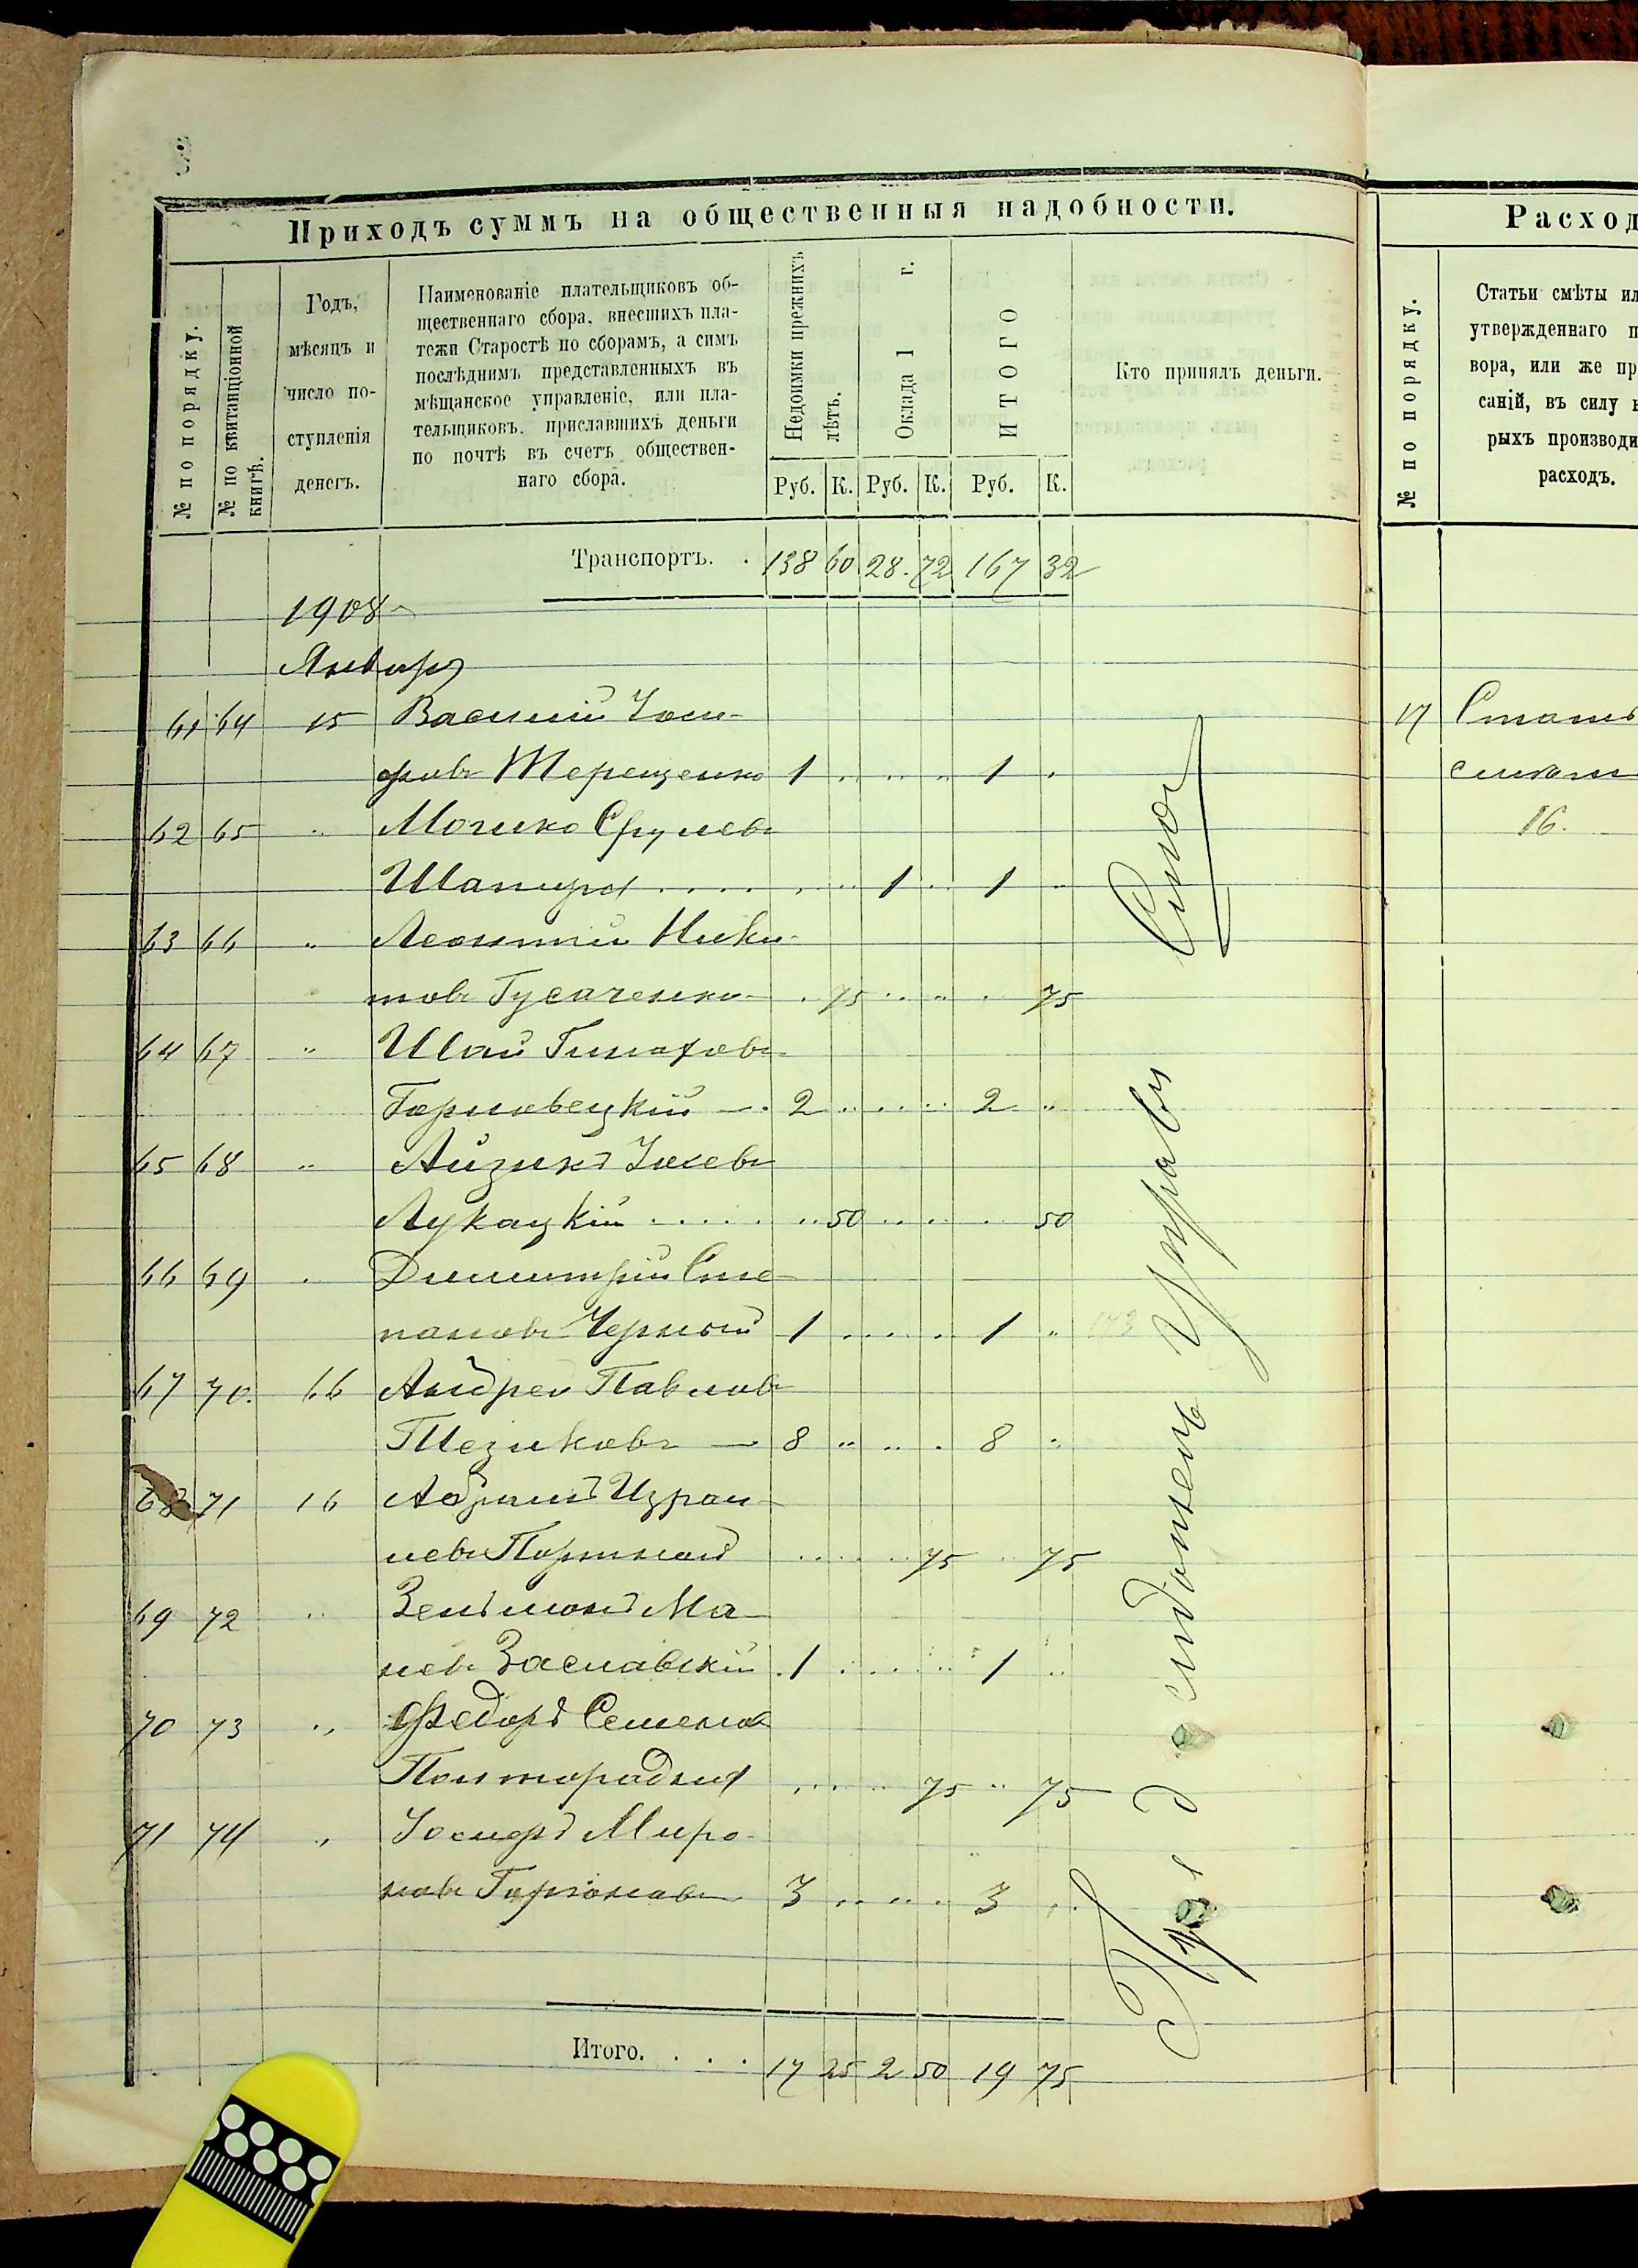 Приходъ суммъ на общественныя надобности.
№ по порядку.
№ по квитанціонной книгѣ.
Годъ,
мѣсяцъ и
число по-
ступленія
денегъ.
Наименованіе плательщиковъ об-
щественнаго сбора, внесшихъ пла-
тежи Старостѣ по сборамъ, а симъ
послѣднимъ представленныхъ въ
мѣщанское управленіе, или пла-
тельщиковъ, приславшихъ деньги
по почтѣ въ счетъ обществен-
наго сбора.
Недоимки прежнихъ лѣтъ.
Оклада 1 г.
ИТОГО
Кто принялъ деньги.
Руб. К. Руб. К. Руб. К.
Транспортъ. . 138 60 28. 72 167 32
1908
Январь
61 64 15 Василій Іоси-
фовъ Терещенко 1 1
62 65 " Мошко Срулевъ
Шапиро 1 1
63 66 " Леонтій Ники-
товъ Гусаченко 75 75
64 67 " Шая
2 2
65 68 " Айзикъ
Лукацкій 50 50
66 69 " Димитрій Сте-
пановъ Черный 1 1
67 70. 16 Андрей Павловъ
8 8
68 71 16 Абрамъ Израи-
левъ Портной 75 75
69 72 " Зельманъ Ма-
невъ Заславскій 1 1
70 73 " Федоръ Семеновъ
75 75
71 74 " Іосифъ Миро-
новъ 3 3
Итого. . . . 17 25 2 50 19 75
Управы
Расход
№ по порядку.
Статьи смѣты ил
утвержденнаго п
вора, или же пр
саній, въ силу к
рыхъ производи
расходъ.
17
16.